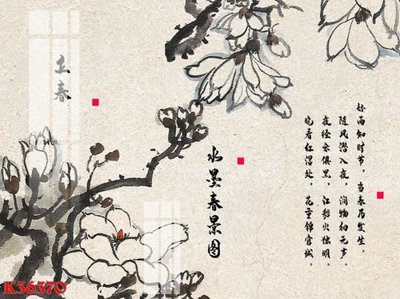 好雨知时节，当春乃发生，
随风潜入夜，润物细无声，
夜径云俱黑，江船火独明，
晓看红湿处，花重锦官城，
水墨春景图
春
K36570